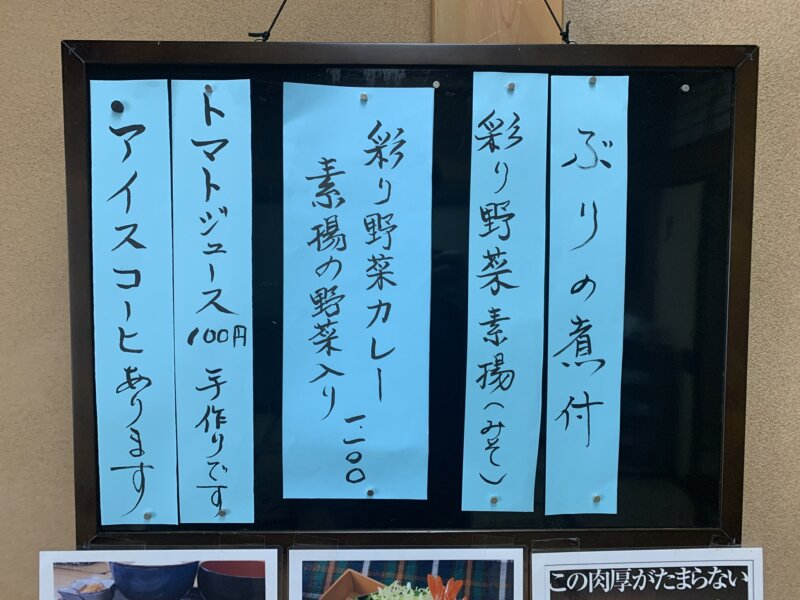 ぶりの煮付
彩り野菜素揚(みそ)
彩り野菜カレー 一、一〇〇
素揚の野菜入り
トマトジュース 100円 手作りです
・アイスコーヒあります
この肉厚がたまらない